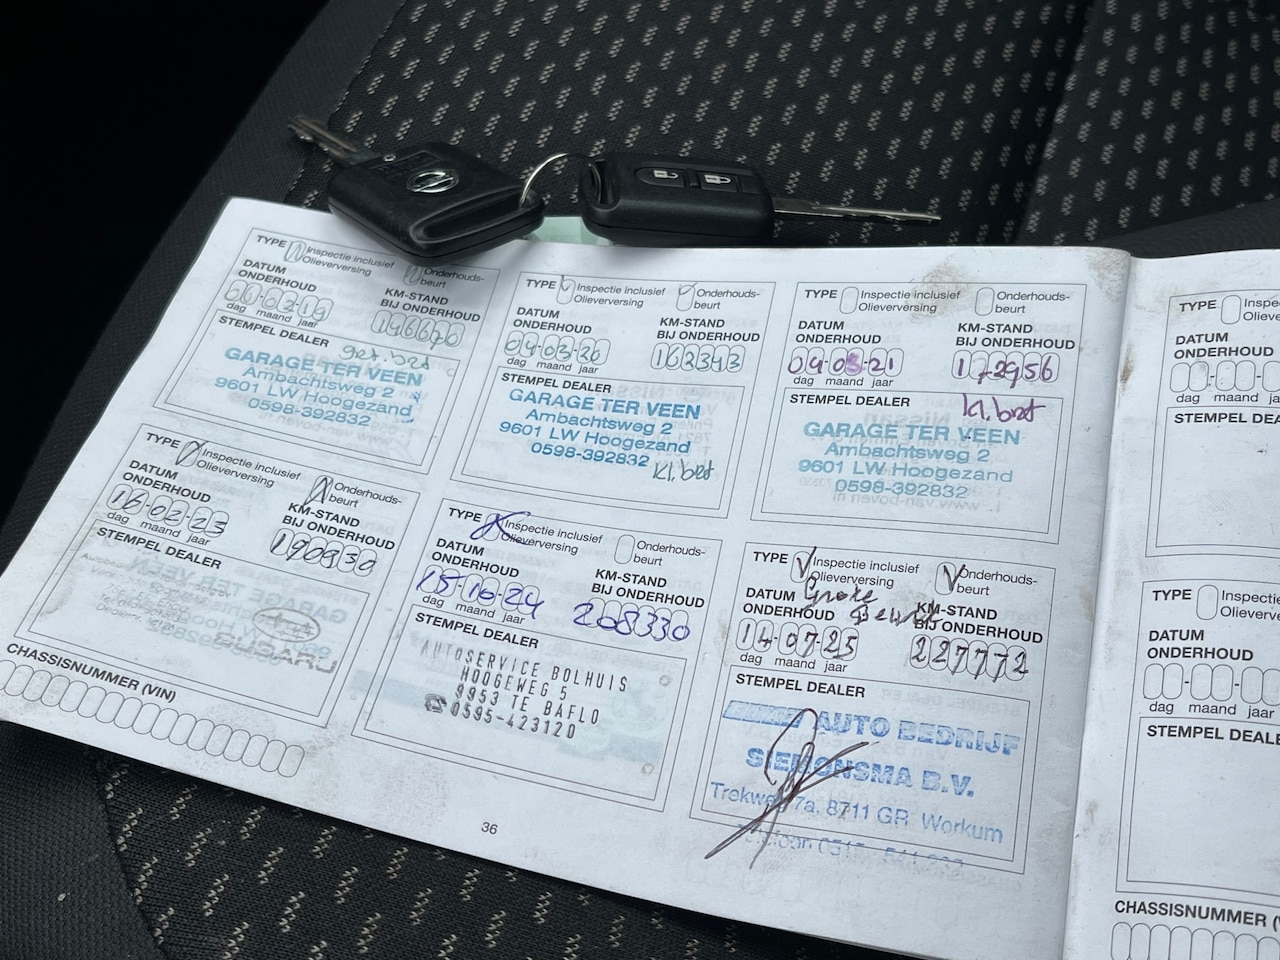 TYPE Inspectie inclusief Olieverversing Onderhouds-beurt
DATUM ONDERHOUD
KM-STAND BIJ ONDERHOUD
02-19
dag maand jaar
STEMPEL DEALER
GARAGE TER VEEN
Ambachtsweg 2
9601 LW Hoogezand
0598-392832
TYPE Inspectie inclusief Olieverversing Onderhouds-beurt
DATUM ONDERHOUD
KM-STAND BIJ ONDERHOUD
04-03-20
162343
dag maand jaar
STEMPEL DEALER
GARAGE TER VEEN
Ambachtsweg 2
9601 LW Hoogezand
0598-392832
kl.brt
TYPE Inspectie inclusief Olieverversing Onderhouds-beurt
DATUM ONDERHOUD
KM-STAND BIJ ONDERHOUD
04-03-21
172956
dag maand jaar
STEMPEL DEALER
kl.brt
GARAGE TER VEEN
Ambachtsweg 2
9601 LW Hoogezand
0598-392832
TYPE Inspectie inclusief Olieverversing Onderhouds-beurt
DATUM ONDERHOUD
KM-STAND BIJ ONDERHOUD
16-02-23
190930
dag maand jaar
STEMPEL DEALER
CHASSISNUMMER (VIN)
TYPE Inspectie inclusief Olieverversing Onderhouds-beurt
DATUM ONDERHOUD
KM-STAND BIJ ONDERHOUD
15-10-24
208330
dag maand jaar
STEMPEL DEALER
AUTOSERVICE BOLHUIS
HOOGEWEG 5
9953 TE BAFLO
☎0595-423120
TYPE Inspectie inclusief Olieverversing Onderhouds-beurt
Grote Beurt
DATUM ONDERHOUD
KM-STAND BIJ ONDERHOUD
14-07-25
227772
dag maand jaar
STEMPEL DEALER
AUTO BEDRIJF
SIEMONSMA B.V.
Trekweg 7a, 8711 GR Workum
Telefoon 0515
36
TYPE
DATUM
ONDERHOUD
dag maand jaar
TYPE
DATUM
ONDERHOUD
dag maand jaar
CHASSISNUMMER